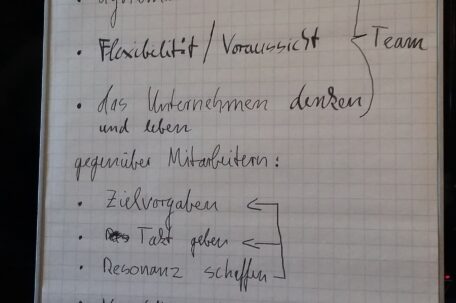 • Flexibilität / Voraussicht
Team
• das Unternehmen denken
und leben
gegenüber Mitarbeitern:
• Zielvorgaben
• Takt geben
• Resonanz schaffen